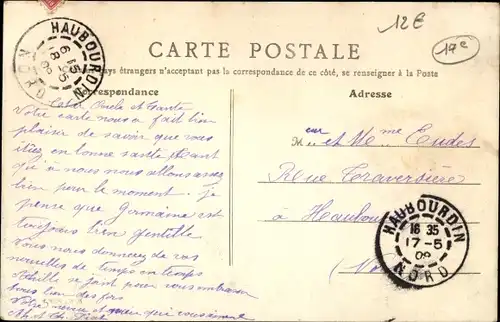 12€
17e
HAUBOURDIN
6 15
18-5
09
NORD
CARTE POSTALE
pays étrangers n'acceptant pas la correspondance de ce côté, se renseigner à la Poste
Correspondance
Adresse
Cher Oncle et Tante
Votre carte nous a fait bien
plaisir de savoir que vous
êtes en bonne santé
qu'à nous nous allons assez
bien pour le moment. Je
pense que Germaine est
toujours bien gentille
Nous vous donnerez de vos
nouvelles de temps en temps
Achille se joint pour vous embrasser
tous bien des fois
Votre neveu et qui vous aiment
M eur et Mme Eudes
Rue Traversière
à Haubourdin
HAUBOURDIN
16 35
17-5
09
NORD